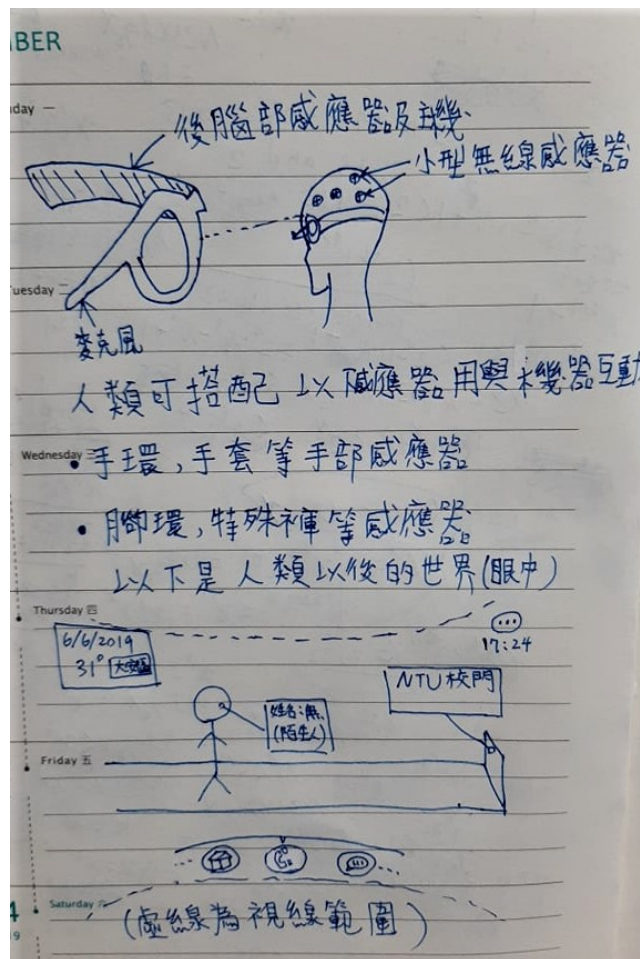 BER
day 一
後腦部感應器及主機
小型無線感應器
uesday 二
麥克風
人類可搭配以感應器用與機器互動
Wednesday 三
• 手環,手套等手部感應器
• 腳環,特殊褲等感應器
以下是人類以後的世界(眼中)
Thursday 四
6/6/2019
31° 大安區
17:24
NTU校門
姓名:無
(陌生人)
Friday 五
Saturday 六
(虛線為視線範圍)
4
9